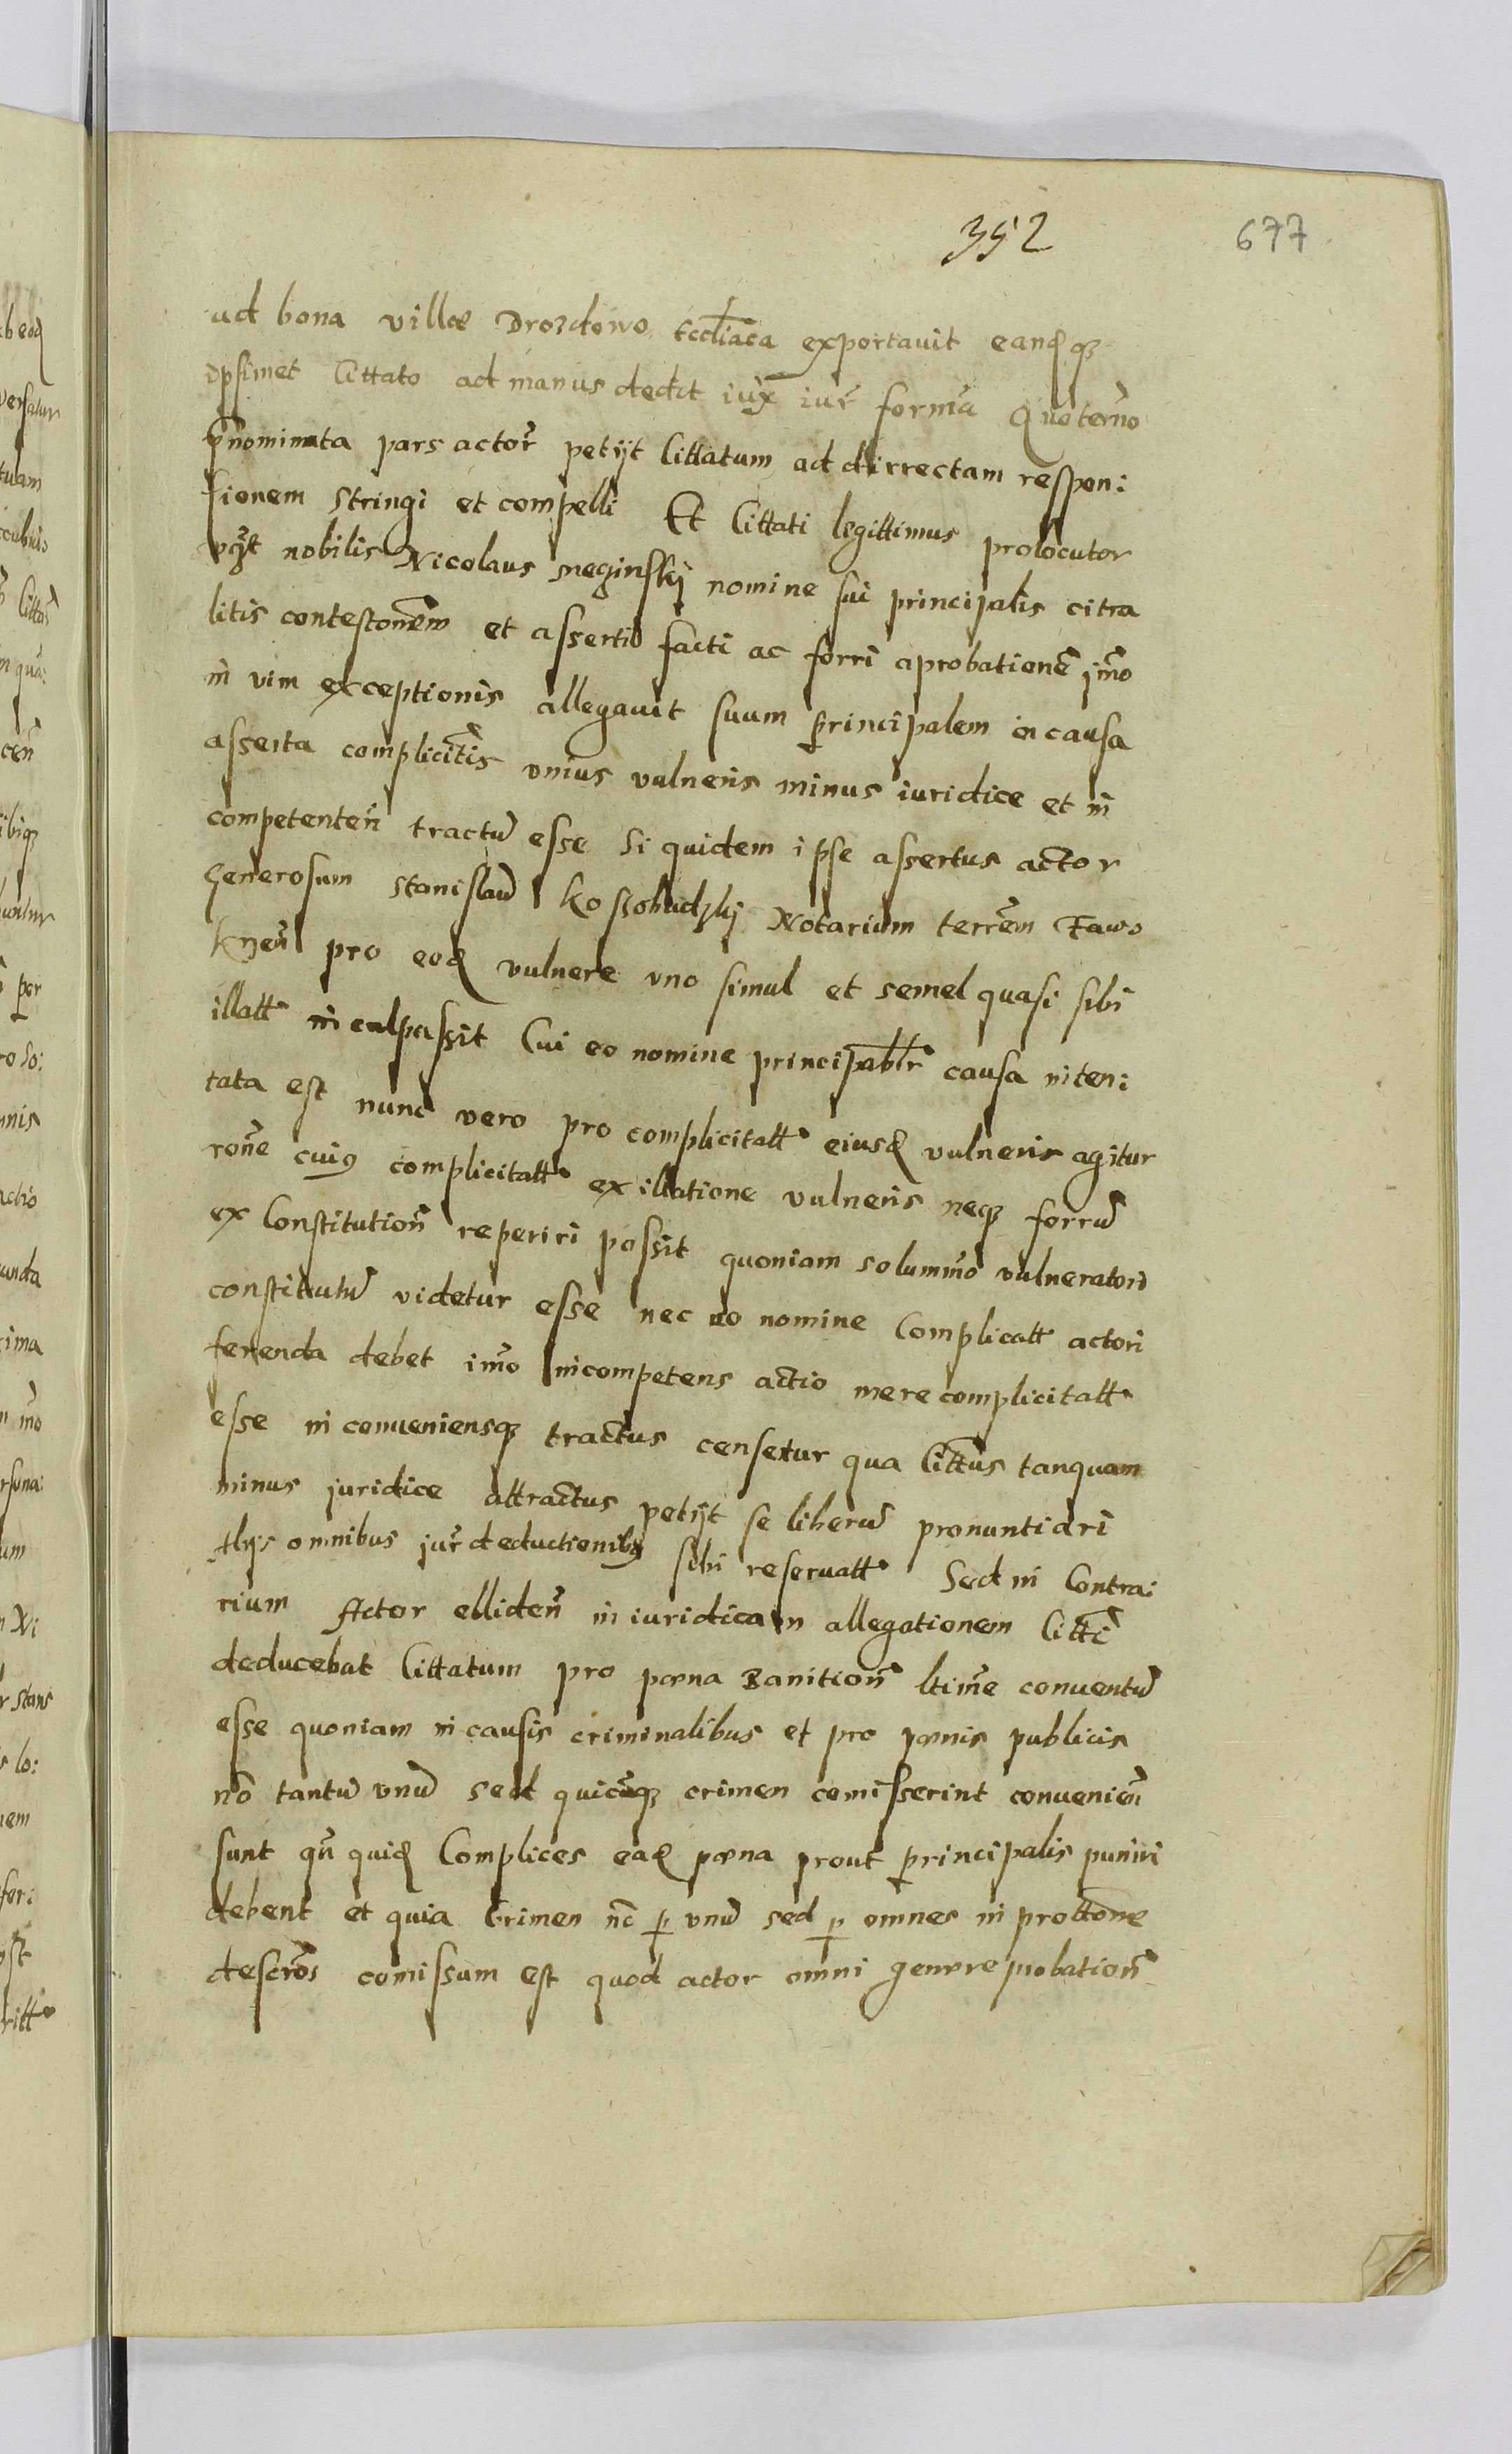 352 677
ad bona villæ Drozdowo Eccliaca exportavit eandqȝ
ipsimet Cittato ad manus dedit iux iur formã Quo termo
pnominata pars actor petijt Cittatum ad dirrectam respon:
sionem stringi et compelli Et Cittati legittimus prolocutor
nobilis Nicolaus meginskij nomine sui principalis citra
litis contestonem et asserti facti ac forri aprobationẽ imo
in vim exceptionis allegavit suum principalem in causa
asserta complicitis vnius vulneris minus iuridice et in
competenteñ tractũ esse Si quidem ipse assertus actor
Generosum Stanislaũ Koszobudzkij Notarium terrem Zawo
krzeñ pro eod vulnere vno simul et semel quasi sibi
illatt inculpassit Cui eo nomine principaltr causa inten:
tata est nunc vero pro complicitatt eiusd vulneris agitur
rone cuiꝰ complicitatt ex illatione vulneris neqȝ forrũ
ex Constitutioñ reperiri possit quoniam solummo vulneratori
constitutũ videtur esse nec eo nomine Complicatt actori
ferenda debet imo incompetens actio mere complicitatt
esse inconueniensqȝ tractus censetur qua Cittus tanquam
minus juridice attractus petijt se liberũ pronuntiari
Alijs omnibus jur deductionibꝰ sibi reseruatt Sed in Contra:
rium Actor ellideñ iniuridicam allegationem Citti
deducebat Cittatum pro pœna Banitioñ ltime conuentũ
esse quoniam in causis criminalibus et pro pœnis publicis
nõ tantũ vnũ sed quicũqȝ crimen comisserint conuenieñ
sunt qñ quid Complices ead pœna prout principalis puniri
debent et quia Crimen nõ p vnũ sed p omnes in prottone
descros comissum est quod actor omni genere probatioñ